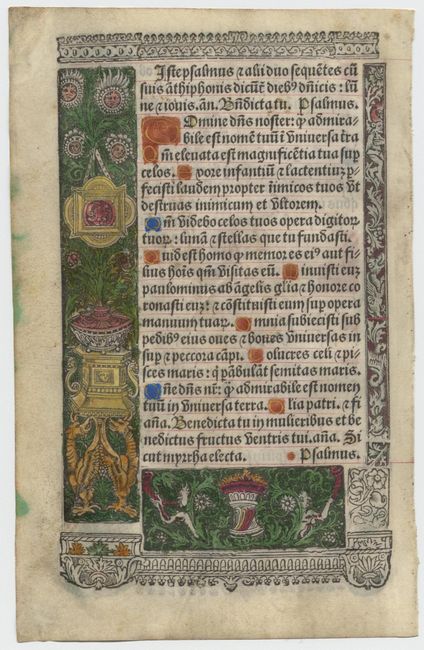 Iste psalmus ⁊ alii duo sequẽtes cũ
suis ãthiphonis dicũt̃ dieb⁹ dñicis : lũ
ne ⁊ iouis. añ. Bñdicta tu. Psalmus.
Omine dñs noster: ꝙ admira
bile est nomẽ tuũ ĩ vniuersa tr̃a
Qm̃ eleuata est magnificẽtia tua sup̃
celos. Ex ore infantiũ ⁊ lactentiuꝫ ꝑ
fecisti laudem propter ĩimicos tuos vt
destruas inimicum et vltorem.
Qm̃ videbo celos tuos opera digitoꝝ
tuoꝝ: lunã ⁊ stellas que tu fundasti.
Quid est homo ꝙ memor es ei⁹ aut fi
lius hoĩs qm̃ visitas eũ. Minuisti euꝫ
paulominus ab ãgelis gl̃ia ⁊ honore co
ronasti euꝫ: ⁊ cõstituisti eum sup̃ opera
manuum tuaꝝ. Omnia subiecisti sub
pedib⁹ eius oues ⁊ boues vniuersas in
sup̃ ⁊ peccora cãpi. Volucres celi ⁊ pi
sces maris: q̃ ꝑãbulãt semitas maris.
Dñe dñs nr̃: ꝙ̃ admirabile est nomen
tuũ in vniuersa terra. Glia patri. ⁊ fi
aña. Benedicta tu in mulieribus et be
nedictus fructus ventris tui. aña. Si
cut myrrha electa. Psalmus.